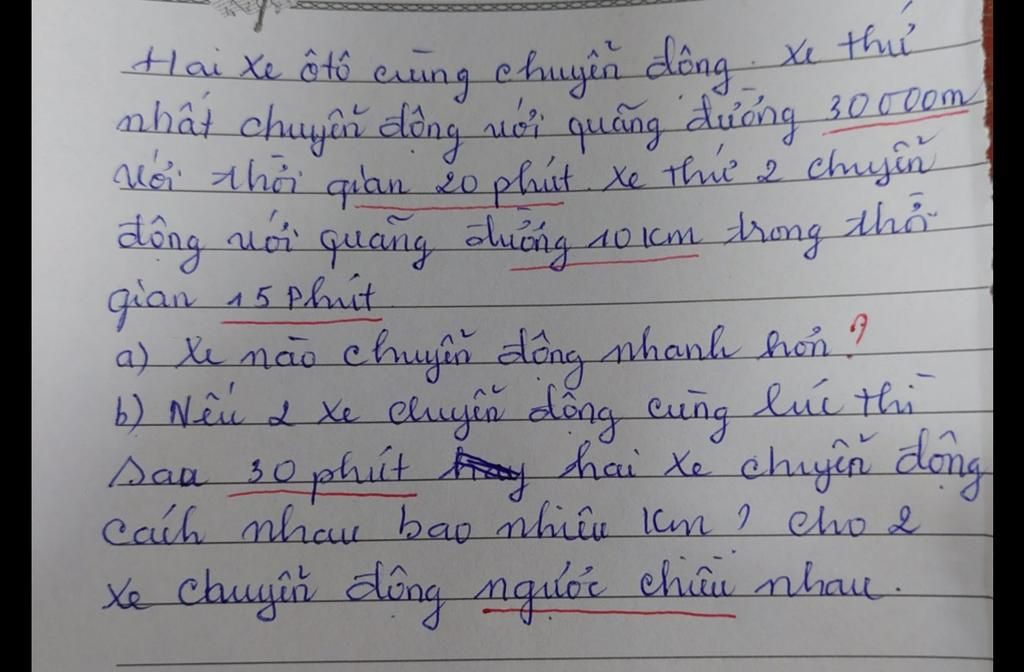 Hai xe ôtô cùng chuyển động. xe thứ
nhất chuyển động với quãng đường 30000m
với thời gian 20 phút. xe thứ 2 chuyển
động với quãng đường 10km trong thời
gian 15 phút
a) Xe nào chuyển động nhanh hơn?
b) Nếu 2 xe chuyển động cùng lúc thì
sau 30 phút hai xe chuyển động
cách nhau bao nhiêu km? cho 2
xe chuyển động ngược chiều nhau.